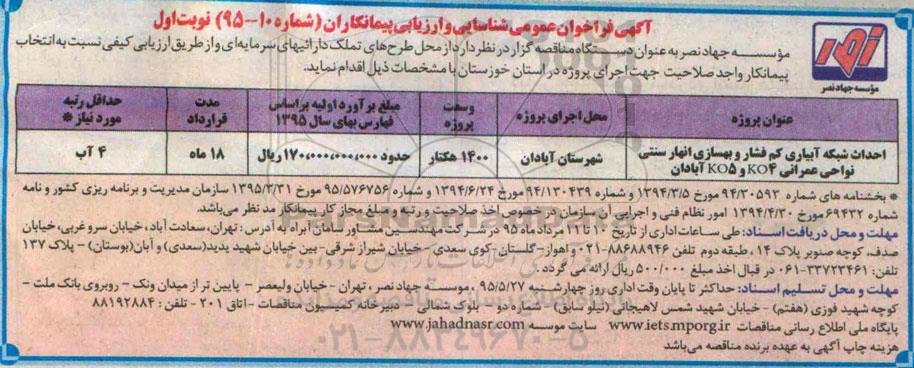 آگهی فراخوان عمومی شناسایی و ارزیابی پیمانکاران (شماره ۱۰-۹۵) نوبت اول
نصر
مؤسسه جهاد نصر
مؤسسه جهاد نصر به عنوان دستگاه مناقصه گزار در نظر دارد از محل طرح‌های تملک دارائیهای سرمایه‌ای و از طریق ارزیابی کیفی نسبت به انتخاب
پیمانکار واجد صلاحیت جهت اجرای پروژه در استان خوزستان با مشخصات ذیل اقدام نماید.
عنوان پروژه | محل اجرای پروژه | وسعت پروژه | مبلغ برآورد اولیه براساس فهارس بهای سال ۱۳۹۵ | مدت قرارداد | حداقل رتبه مورد نیاز *
احداث شبکه آبیاری کم فشار و بهسازی انهار سنتی نواحی عمرانی KO۴ و KO۵ آبادان | شهرستان آبادان | ۱۴۰۰ هکتار | حدود ۱۷۰,۰۰۰,۰۰۰,۰۰۰ ریال | ۱۸ ماه | ۴ آب
* بخشنامه های شماره ۹۴/۳۰۵۹۳ مورخ ۱۳۹۴/۳/۵ و شماره ۹۴/۱۳۰۴۳۹ مورخ ۱۳۹۴/۶/۲۴ و شماره ۹۵/۵۷۶۷۵۶ مورخ ۱۳۹۵/۳/۳۱ سازمان مدیریت و برنامه ریزی کشور و نامه
شماره ۶۹۴۳۲ مورخ ۱۳۹۴/۴/۳۰ امور نظام فنی و اجرایی آن سازمان در خصوص اخذ صلاحیت و رتبه و مبلغ مجاز کار پیمانکار مد نظر می‌باشد.
مهلت و محل دریافت اسناد: طی ساعات اداری از تاریخ ۱۰ تا ۱۱ مرداد ماه ۹۵ در شرکت مهندسین مشاور سامان آبراه به آدرس: تهران، سعادت آباد، خیابان سرو غربی، خیابان
صدف، کوچه صنوبر پلاک ۱۴، طبقه دوم تلفن ۸۸۶۸۸۹۴۶-۰۲۱ و اهواز-گلستان-کوی سعدی - خیابان شیراز شرقی-بین خیابان شهید پدید(سعدی) و آبان(بوستان) - پلاک ۱۳۷
تلفن: ۳۳۷۲۳۴۶۱-۰۶۱ در قبال اخذ مبلغ ۵۰۰/۰۰۰ ریال ارائه می گردد.
مهلت و محل تسلیم اسناد: حداکثر تا پایان وقت اداری روز چهارشنبه ۹۵/۵/۲۷، موسسه جهاد نصر، تهران - خیابان ولیعصر - پایین تر از میدان ونک - روبروی بانک ملت -
کوچه شهید فوزی (هفتم) - خیابان شهید شمس لاهیجانی (نیلو سابق) - شماره دو - بلوک شمالی - دبیرخانه کمیسیون مناقصات - اتاق ۲۰۱ - تلفن: ۸۸۱۹۲۸۸۴
پایگاه ملی اطلاع رسانی مناقصات www.iets.mporg.ir سایت موسسه www.jahadnasr.com
هزینه چاپ آگهی به عهده برنده مناقصه می‌باشد
۰۲۱-۸۸۳۴۹۶۷۰-۵